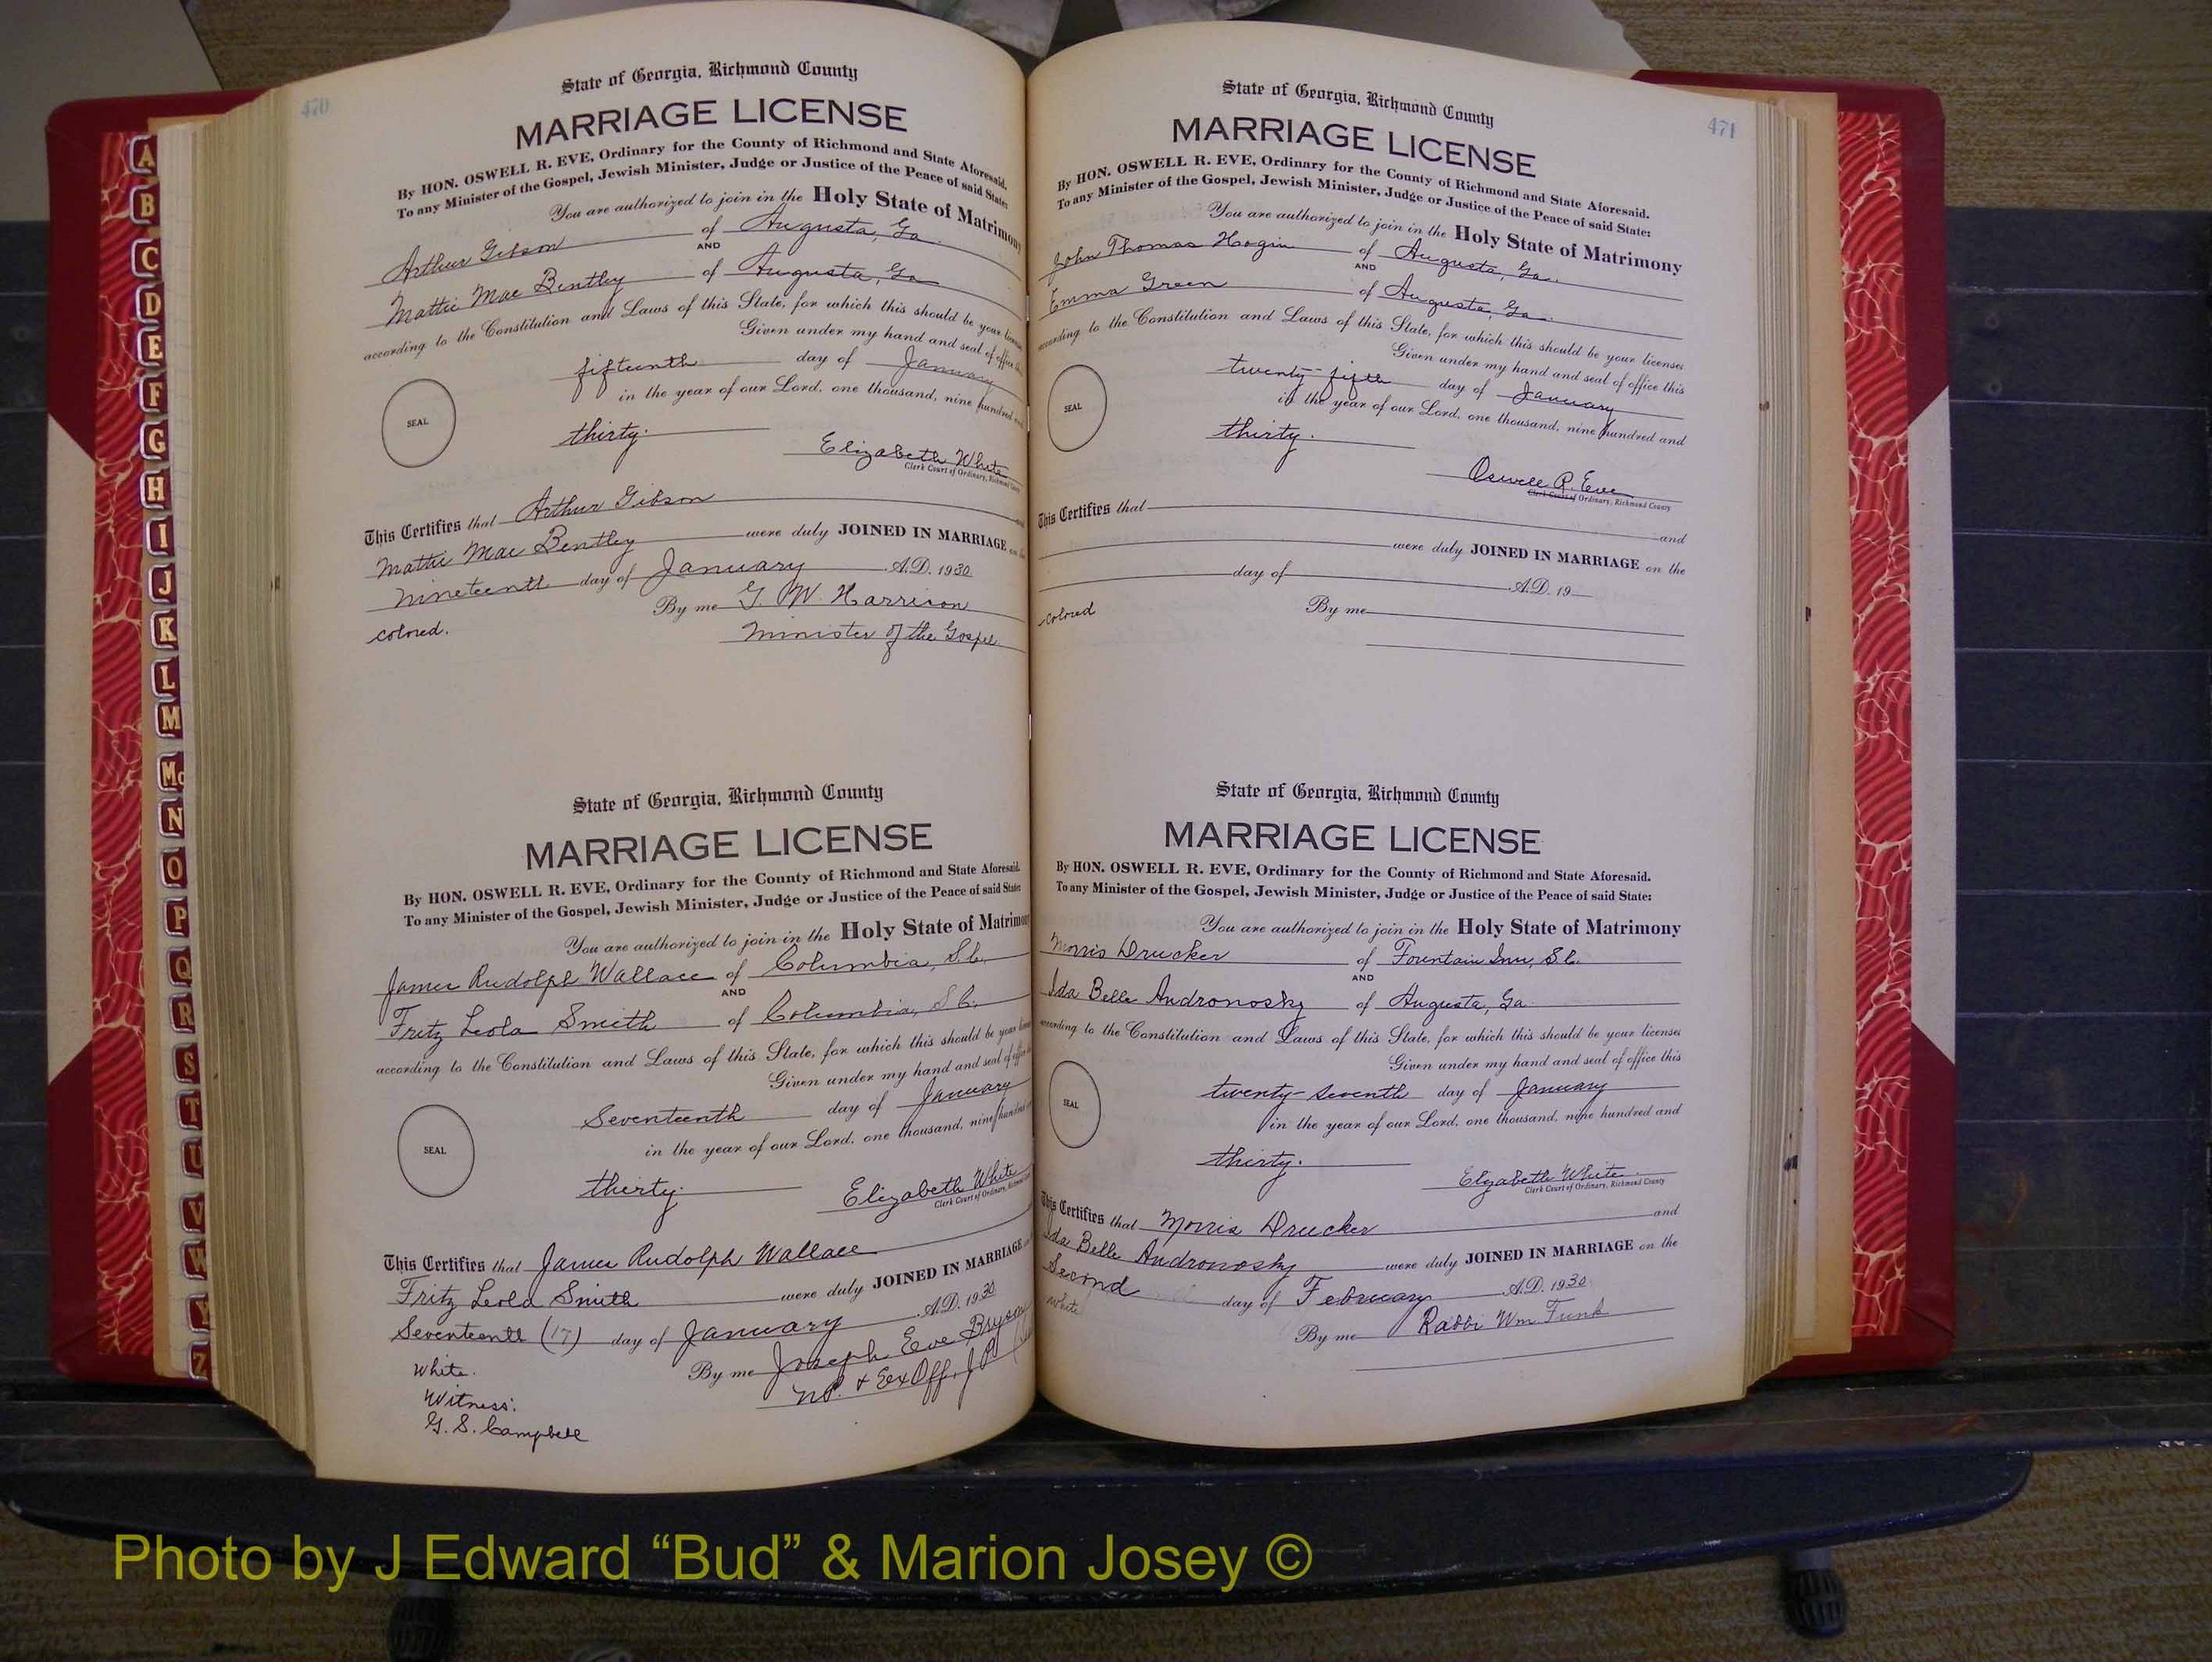 470
State of Georgia, Richmond County
MARRIAGE LICENSE
By HON. OSWELL R. EVE, Ordinary for the County of Richmond and State Aforesaid.
To any Minister of the Gospel, Jewish Minister, Judge or Justice of the Peace of said State:
You are authorized to join in the Holy State of Matrimony
Arthur Gibson of Augusta, Ga.
AND
Mattie Mae Bentley of Augusta, Ga
according to the Constitution and Laws of this State, for which this should be your license
Given under my hand and seal of office
fifteenth day of January
in the year of our Lord, one thousand, nine hundred
SEAL
thirty.
Elizabeth White
Clerk Court of Ordinary, Richmond County
This Certifies that Arthur Gibson
Mattie Mae Bentley were duly JOINED IN MARRIAGE on
nineteenth day of January A.D. 1930
By me G. W. Harrison
colored. Minister of the Gospel
State of Georgia, Richmond County
MARRIAGE LICENSE
By HON. OSWELL R. EVE, Ordinary for the County of Richmond and State Aforesaid.
To any Minister of the Gospel, Jewish Minister, Judge or Justice of the Peace of said State:
You are authorized to join in the Holy State of Matrimony
James Rudolph Wallace of Columbia, S.C.
AND
Fritz Leola Smith of Columbia, S.C.
according to the Constitution and Laws of this State, for which this should be your
Given under my hand and seal of office
Seventeenth day of January
in the year of our Lord, one thousand, nine hundred
SEAL
thirty.
Elizabeth White
Clerk Court of Ordinary, Richmond
This Certifies that James Rudolph Wallace
Fritz Leola Smith were duly JOINED IN MARRIAGE
Seventeenth (17) day of January A.D. 1930
By me Joseph Eve Bryson
White. N.P. & Ex Off. J P
Witness:
G. S. Campbell
471
State of Georgia, Richmond County
MARRIAGE LICENSE
By HON. OSWELL R. EVE, Ordinary for the County of Richmond and State Aforesaid.
To any Minister of the Gospel, Jewish Minister, Judge or Justice of the Peace of said State:
You are authorized to join in the Holy State of Matrimony
John Thomas Hogin of Augusta, Ga.
AND
Emma Green of Augusta, Ga.
according to the Constitution and Laws of this State, for which this should be your licenses
Given under my hand and seal of office this
twenty-fifth day of January
in the year of our Lord, one thousand, nine hundred and
SEAL
thirty.
Oswell R. Eve
Clerk Court of Ordinary, Richmond County
This Certifies that and
were duly JOINED IN MARRIAGE on the
day of A.D. 19
colored By me
State of Georgia, Richmond County
MARRIAGE LICENSE
By HON. OSWELL R. EVE, Ordinary for the County of Richmond and State Aforesaid.
To any Minister of the Gospel, Jewish Minister, Judge or Justice of the Peace of said State:
You are authorized to join in the Holy State of Matrimony
Morris Drucker of Fountain Inn, S.C.
AND
Ida Belle Andronosky of Augusta, Ga
according to the Constitution and Laws of this State, for which this should be your licenses
Given under my hand and seal of office this
twenty-seventh day of January
in the year of our Lord, one thousand, nine hundred and
SEAL
thirty.
Elizabeth White
Clerk Court of Ordinary, Richmond County
This Certifies that Morris Drucker and
Ida Belle Andronosky were duly JOINED IN MARRIAGE on the
Second day of February A.D. 1930
white By me Rabbi Wm. Funk
A
B
C
D
E
F
G
H
I
J
K
L
M
Mc
N
O
P
Q
R
S
T
U
V
W
Y
Z
Photo by J Edward “Bud” & Marion Josey ©